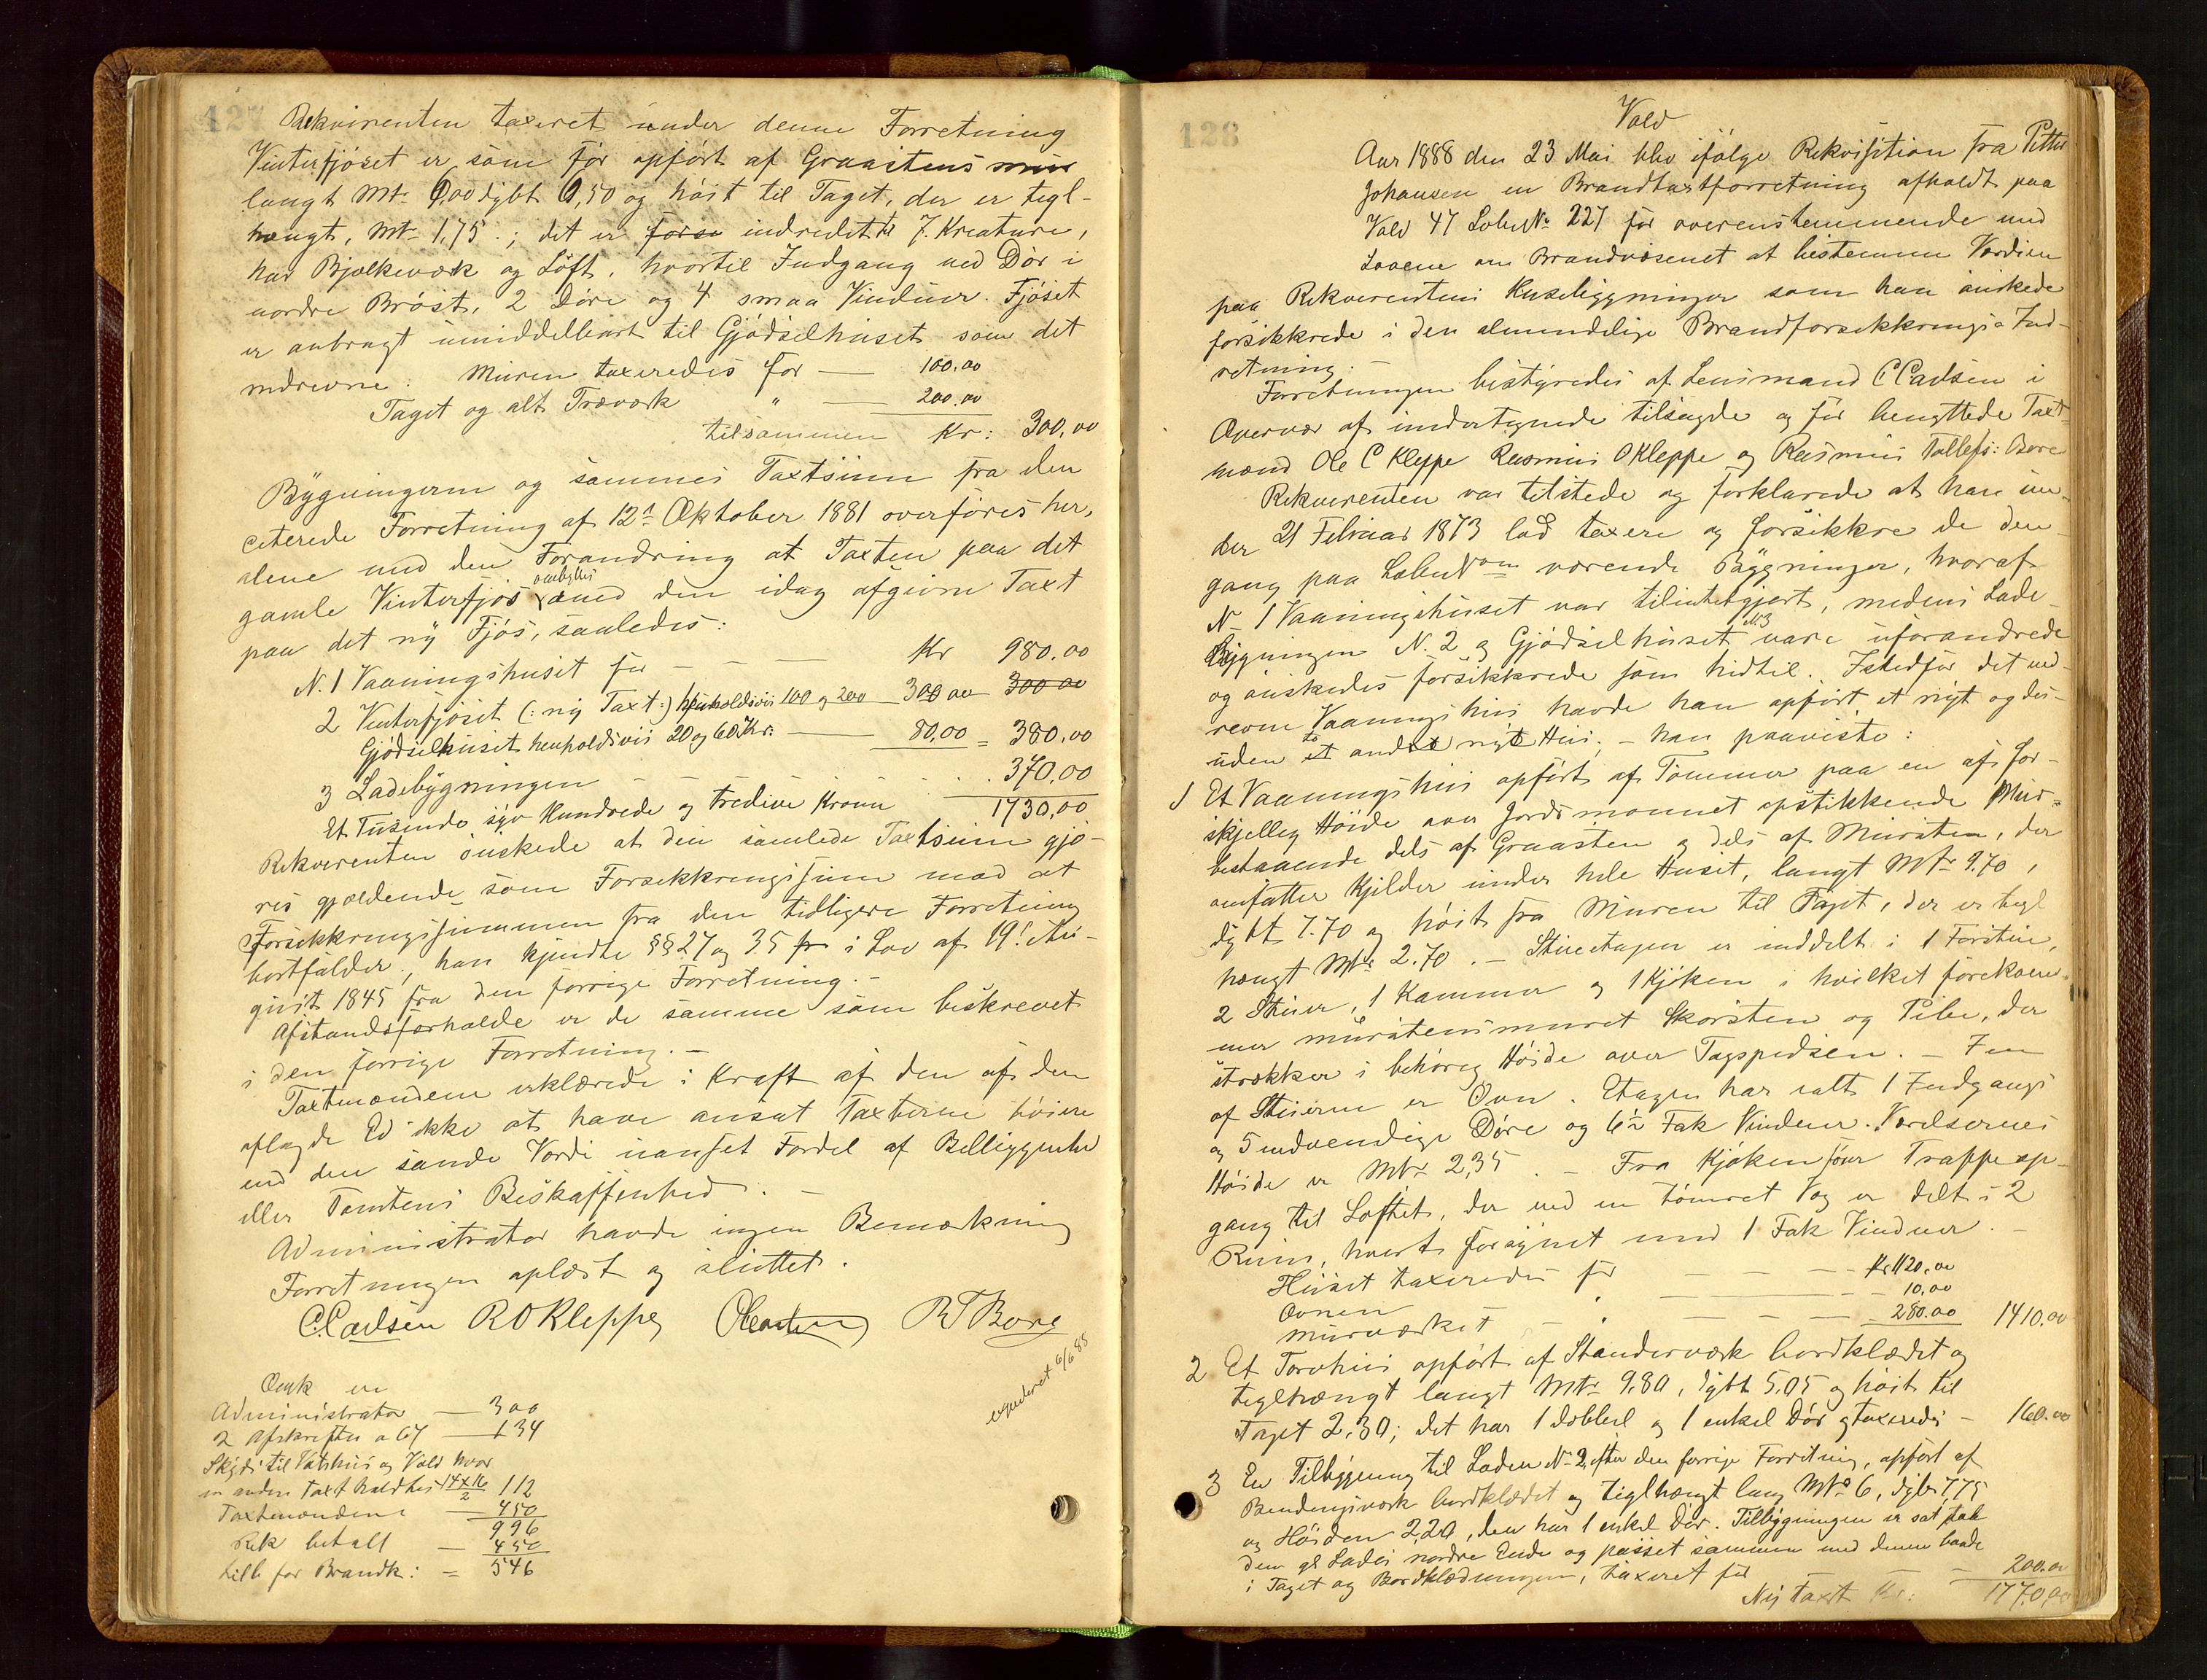 127
Rekvirenten taxeret under denne Forretning
Vinterfjöset er som för opfört af Graastens mur
langt Mtr 6,00 dybt 6,50 og höit til Taget, der er tegl-
hængt, Mtr 1,75.; det er förse indredet til 7 Kreature,
har Bjælkeværk og Löft, hvortil Indgang ved Dör i
nordre Bröst, 2 Döre og 4 smaa Vinduer. Fjöset
er anbragt umiddelbart til Gjödselhuset som det
nedrevne. Muren taxeredes for — 100.00
Taget og alt Træværk " — 200.00
tilsammen Kr: 300,00
Bygningerne og sammes Taxtsum fra den
citerede Forretning af 12te Oktober 1881 overföres her,
alene med den Forandring at Taxten paa det
gamle Vinterfjös ombyttes med den idag afgivne Taxt
paa det ny Fjös, saaledes:
N. 1 Vaaningshuset for — — — Kr 980.00
2 Vinterfjöset (: ny Taxt:) henholdsvis 100 og 200 — 300 00 300 00
Gjödselhuset henholdsvis 20 og 60 Kr. — 80,00 = 380.00
3 Ladebygningen - - - - - 370.00
Et Tusende syv Hundrede og tredive Kroner 1730,00
Rekvirenten önskede at den samlede Taxtsum gjö-
res gjældende som Forsikkringssum mod at
Forsikkringssummen fra den tidligere Forretning
bortfalder; han kjendte §§ 27 og 35 fr i Lov af 19! Au-
gust 1845 fra den forrige Forretning.-
Afstandsforholde er de samme som beskrevet
i den forrige Forretning.-
Taxtmændene erklærede i Kraft af den af dem
aflagde Ed ikke at have ansat Taxterne höiere
end den sande Værdi uanset Fordel af Beliggenhed
eller Tomtens Beskaffenhed.-
Administrator havde ingen Bemærkning
Forretningen oplæst og sluttet.
C. Carlsen R O Kleppe R T Bore
expederet 6/6 88
Omk er
Administrator — 300
2 Afskrifter a 67 — 134
Skyds til Vatshus og Vold hvor
en anden Taxt holdtes 14x16/2 112
Taxtmændene — 450
996
Rek betalt — 450
tilb for Brandk: = 546
128
Vold
Aar 1888 den 23 Mai blev ifölge Rekvisition fra Petter
Johansen en Brandtaxtforretning afholdt paa
Vold 47 LöbeNo 227 for overenstemmende med
Lovene om Brandvæsenet at bestemme Værdien
paa Rekverentens Husebygninger som han önskede
forsikkrede i den almindelige Brandforsikkrings-Ind-
retning.
Forretningen bestyredes af Lensmand C Carlsen i
Overvær af undertegnede tilsagde og för benyttede Taxt-
mænd Ole C Kleppe Rasmus O Kleppe og Rasmus Tollefs: Bore
Rekverenten var tilstede og forklarede at han un-
der 21 Februar 1873 lod taxere og forsikkre de den
gang paa LöbeNoen værende Bygninger, hvoraf
No 1 Vaaningshuset var tilintetgjort, medens Lade-
Bygningen N. 2 og Gjödselhuset N3 vare uforandrede
og önskedes forsikkrede som hidtil. Istedfor det ned-
revne Vaaningshus havde han opfört et nyt og des-
uden et andet nyt Hus; - han paaviste:
1 Et Vaaningshus opfört af Tömmer paa en af for-
skjellig Höide over Jordsmonnet opstikkende Mur-
bestaaende dels af Graasten og dels af Mursten, der
omfatter Kjelder under hele Huset, langt Mtr 9.70,
dybt 7.70 og höit fra Muren til Taget, der er tegl
hængt Mtr 2.70. - Stueetagen er inddelt i 1 Forstue,
2 Stuer, 1 Kammer og 1 Kjöken i hvilket forekom-
mer murstensmuret Skorsten og Pibe, der
strækker i behörig Höide over Tagspidsen. - I en
af Stuerne er Ovn. Etagen har ialt 1 Indgangs
og 5 indvendige Döre og 6½ Fak Vinduer. Værelsernes
Höide er Mtr 2,35. - Fra Kjöken förer Trappeop-
gang til Loftet, der ved en tömret Væg er delt i 2
Rum, hvert forsynet med 1 Fak Vinduer.-
Huset taxeredes for — — — Kr 1120,00
Ovnen " — — 10,00
Murværket - " — — — 280.00 1410.00
2 Et Torvhus opfört af Standerværk bordklædet og
teglhængt langt Mtr 9,80, dybt 5,05 og höit til
Taget 2,30; det har 1 dobbel og 1 enkel Dör og taxeredes - 160.00
3 En Tilbygning til Laden No 2 efter den forrige Forretning, opfört af
Bindingsværk bordklædet og teglhængt lang Mtr 6, dyb 7,75
og Höiden 2,20, den har 1 enkel Dör. Tilbygningen er sat paa
den gl Lades nordre Ende og passet sammen med denne baade
i Taget og Bordklædningen, taxeret for — — 200.00
Ny Taxt Kr: 1770,00